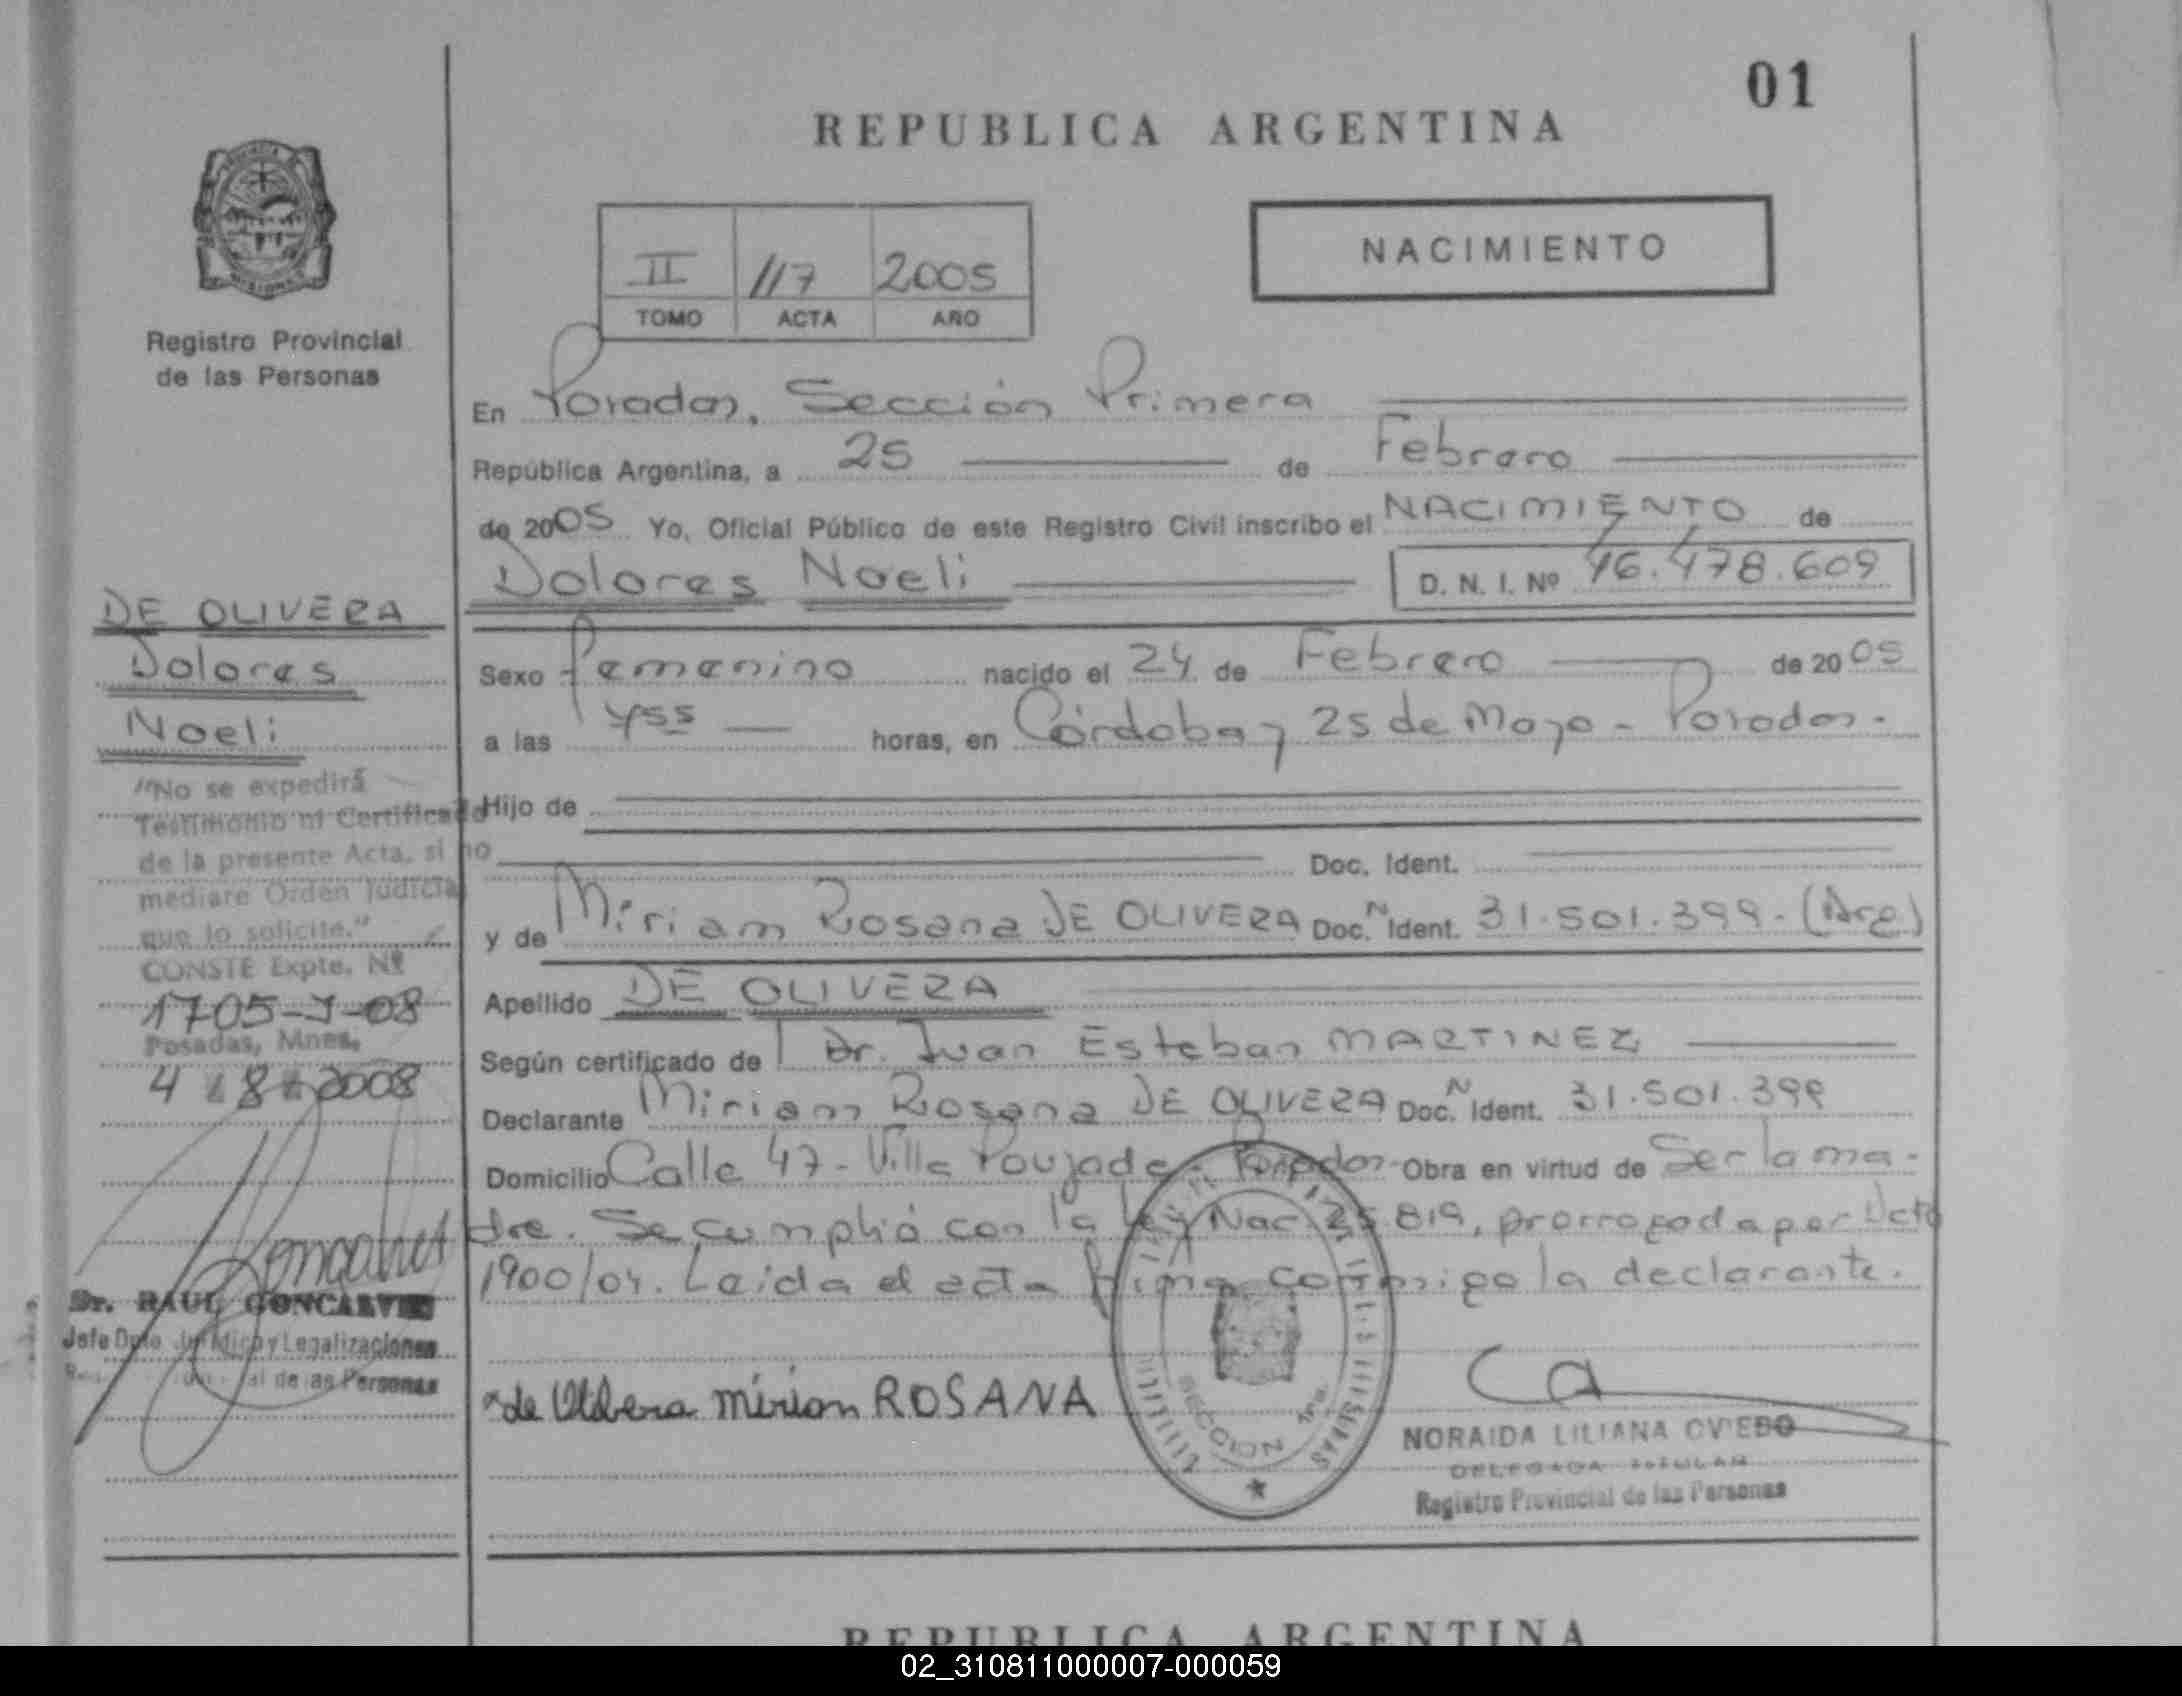 01
REPUBLICA ARGENTINA
II 117 2005
TOMO ACTA AÑO
NACIMIENTO
Registro Provincial
de las Personas
En Posadas, Sección Primera
República Argentina, a 25 de Febrero
de 2005 Yo, Oficial Público de este Registro Civil inscribo el NACIMIENTO de
Dolores Noeli D. N. I. Nº 46.478.609
DE OLIVERA
Dolores
Noeli
Sexo femenino nacido el 24 de Febrero de 2005
a las 455 horas, en Córdoba y 25 de Mayo - Posadas.
Hijo de
Doc. Ident.
y de Miriam Rosana DE OLIVERA Doc. N Ident. 31.501.399. (Arg)
Apellido DE OLIVERA
Según certificado de Dr. Juan Esteban MARTINEZ
Declarante Miriam Rosana DE OLIVERA Doc. N Ident. 31.501.399
Domicilio Calle 47 - Villa Poujade - Posadas Obra en virtud de Ser la ma-
dre. Se cumplió con la Ley Nac. 25.819, prorrogada por Dcto
1900/04. Leida el acta firma conmigo la declarante.
"No se expedirá
Testimonio ni Certificado
de la presente Acta, si no
mediare Orden Judicial
que lo solicite."
CONSTE Expte. Nº
1705-J-08
Posadas, Mnes,
4 8 2008
Goncalves
Dr. RAUL GONCALVES
Jefe Dpto Jurídico y Legalizaciones
de las Personas
de Olibera Mirian ROSANA
SECCION 1ra.
NORAIDA LILIANA OVIEDO
DELEGADA TITULAR
Registro Provincial de las Personas
REPUBLICA ARGENTINA
02_310811000007-000059